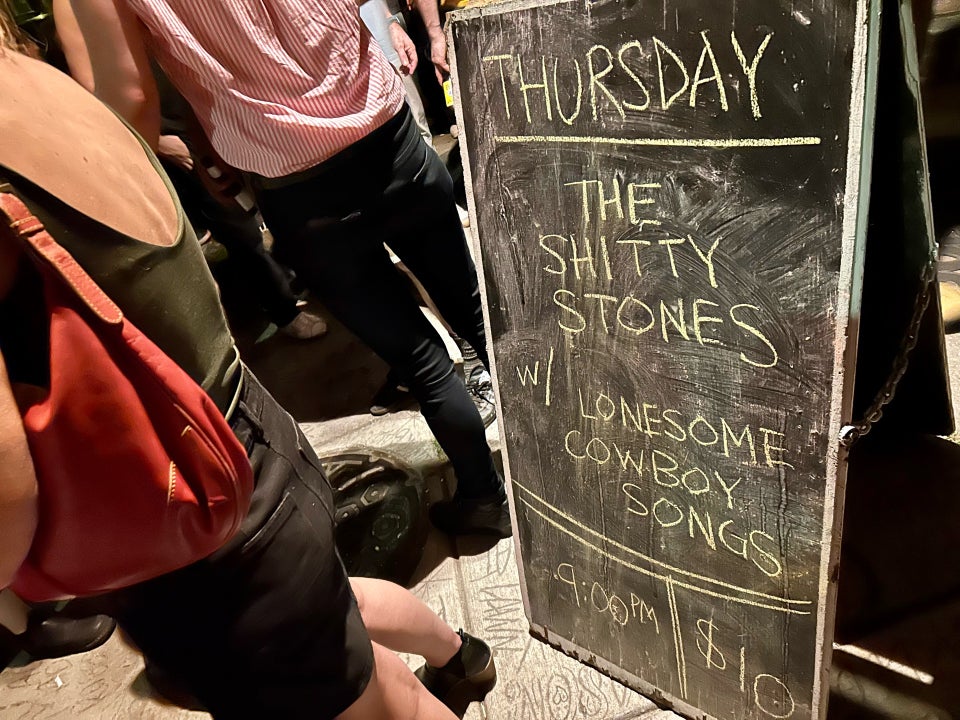 THURSDAY
THE
SHITTY
STONES
W/ LONESOME
COWBOY
SONGS
9:00PM $10